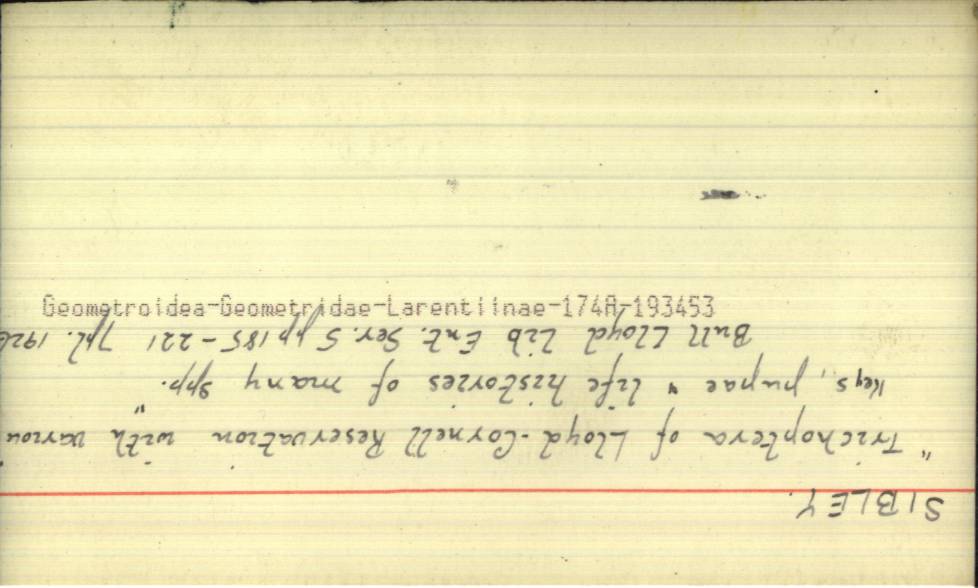 SIBLEY.
"Trichoptera of Lloyd-Cornell Reservation" with variou
Keys, pupae & life histories of many spp.
Bull Lloyd Lib Ent. Ser. 5 pp 185-221 7pl. 1926
Geometroidea-Geometridae-Larentiinae-174A-193453